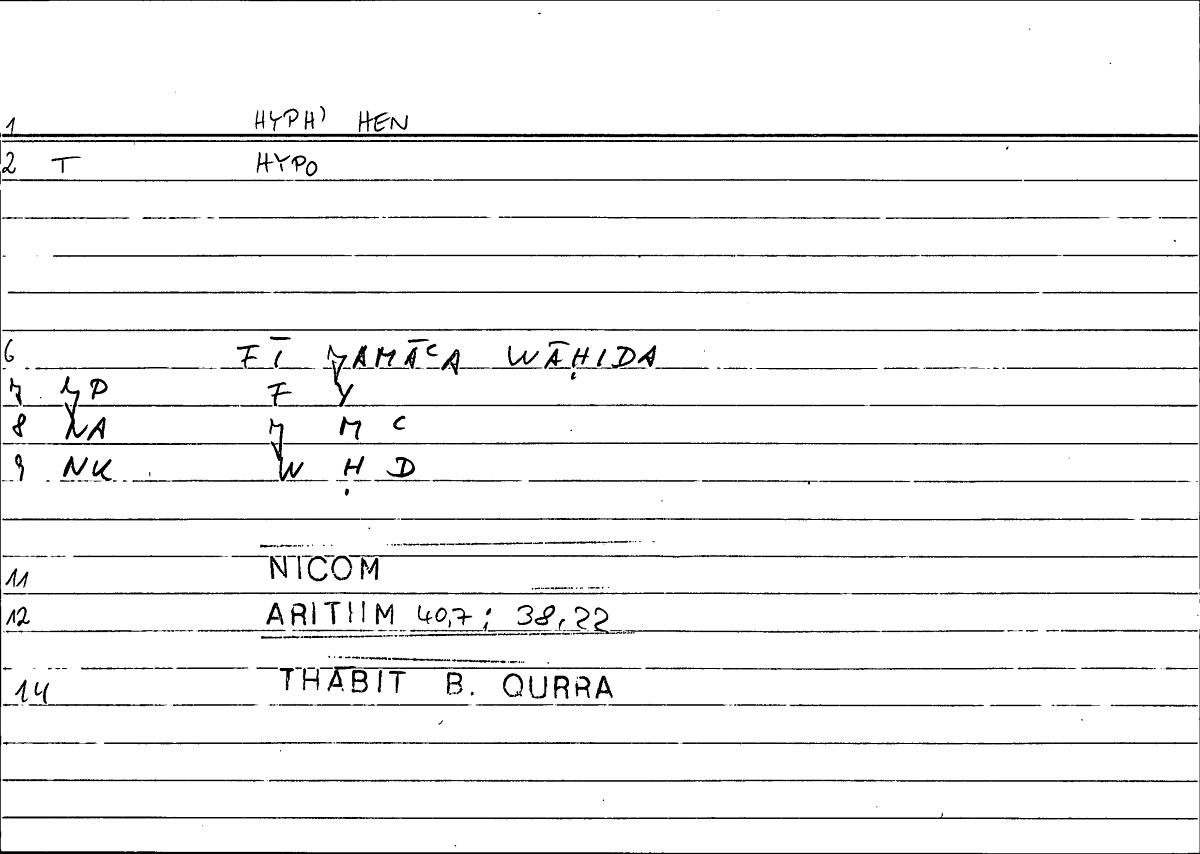 1 HYPH' HEN
2 T HYPO
6 FĪ ǦAMĀʿA WĀḤIDA
7 F Y
8 NA Ǧ M ʿ
9 NK W Ḥ D
11 NICOM
12 ARITHM 40,7; 38,22
14 THĀBIT B. QURRA